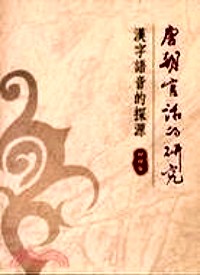 唐朝官話的研究
漢字語音的探源